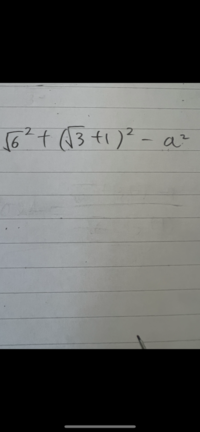 √6² + (√3 + 1)² − a²